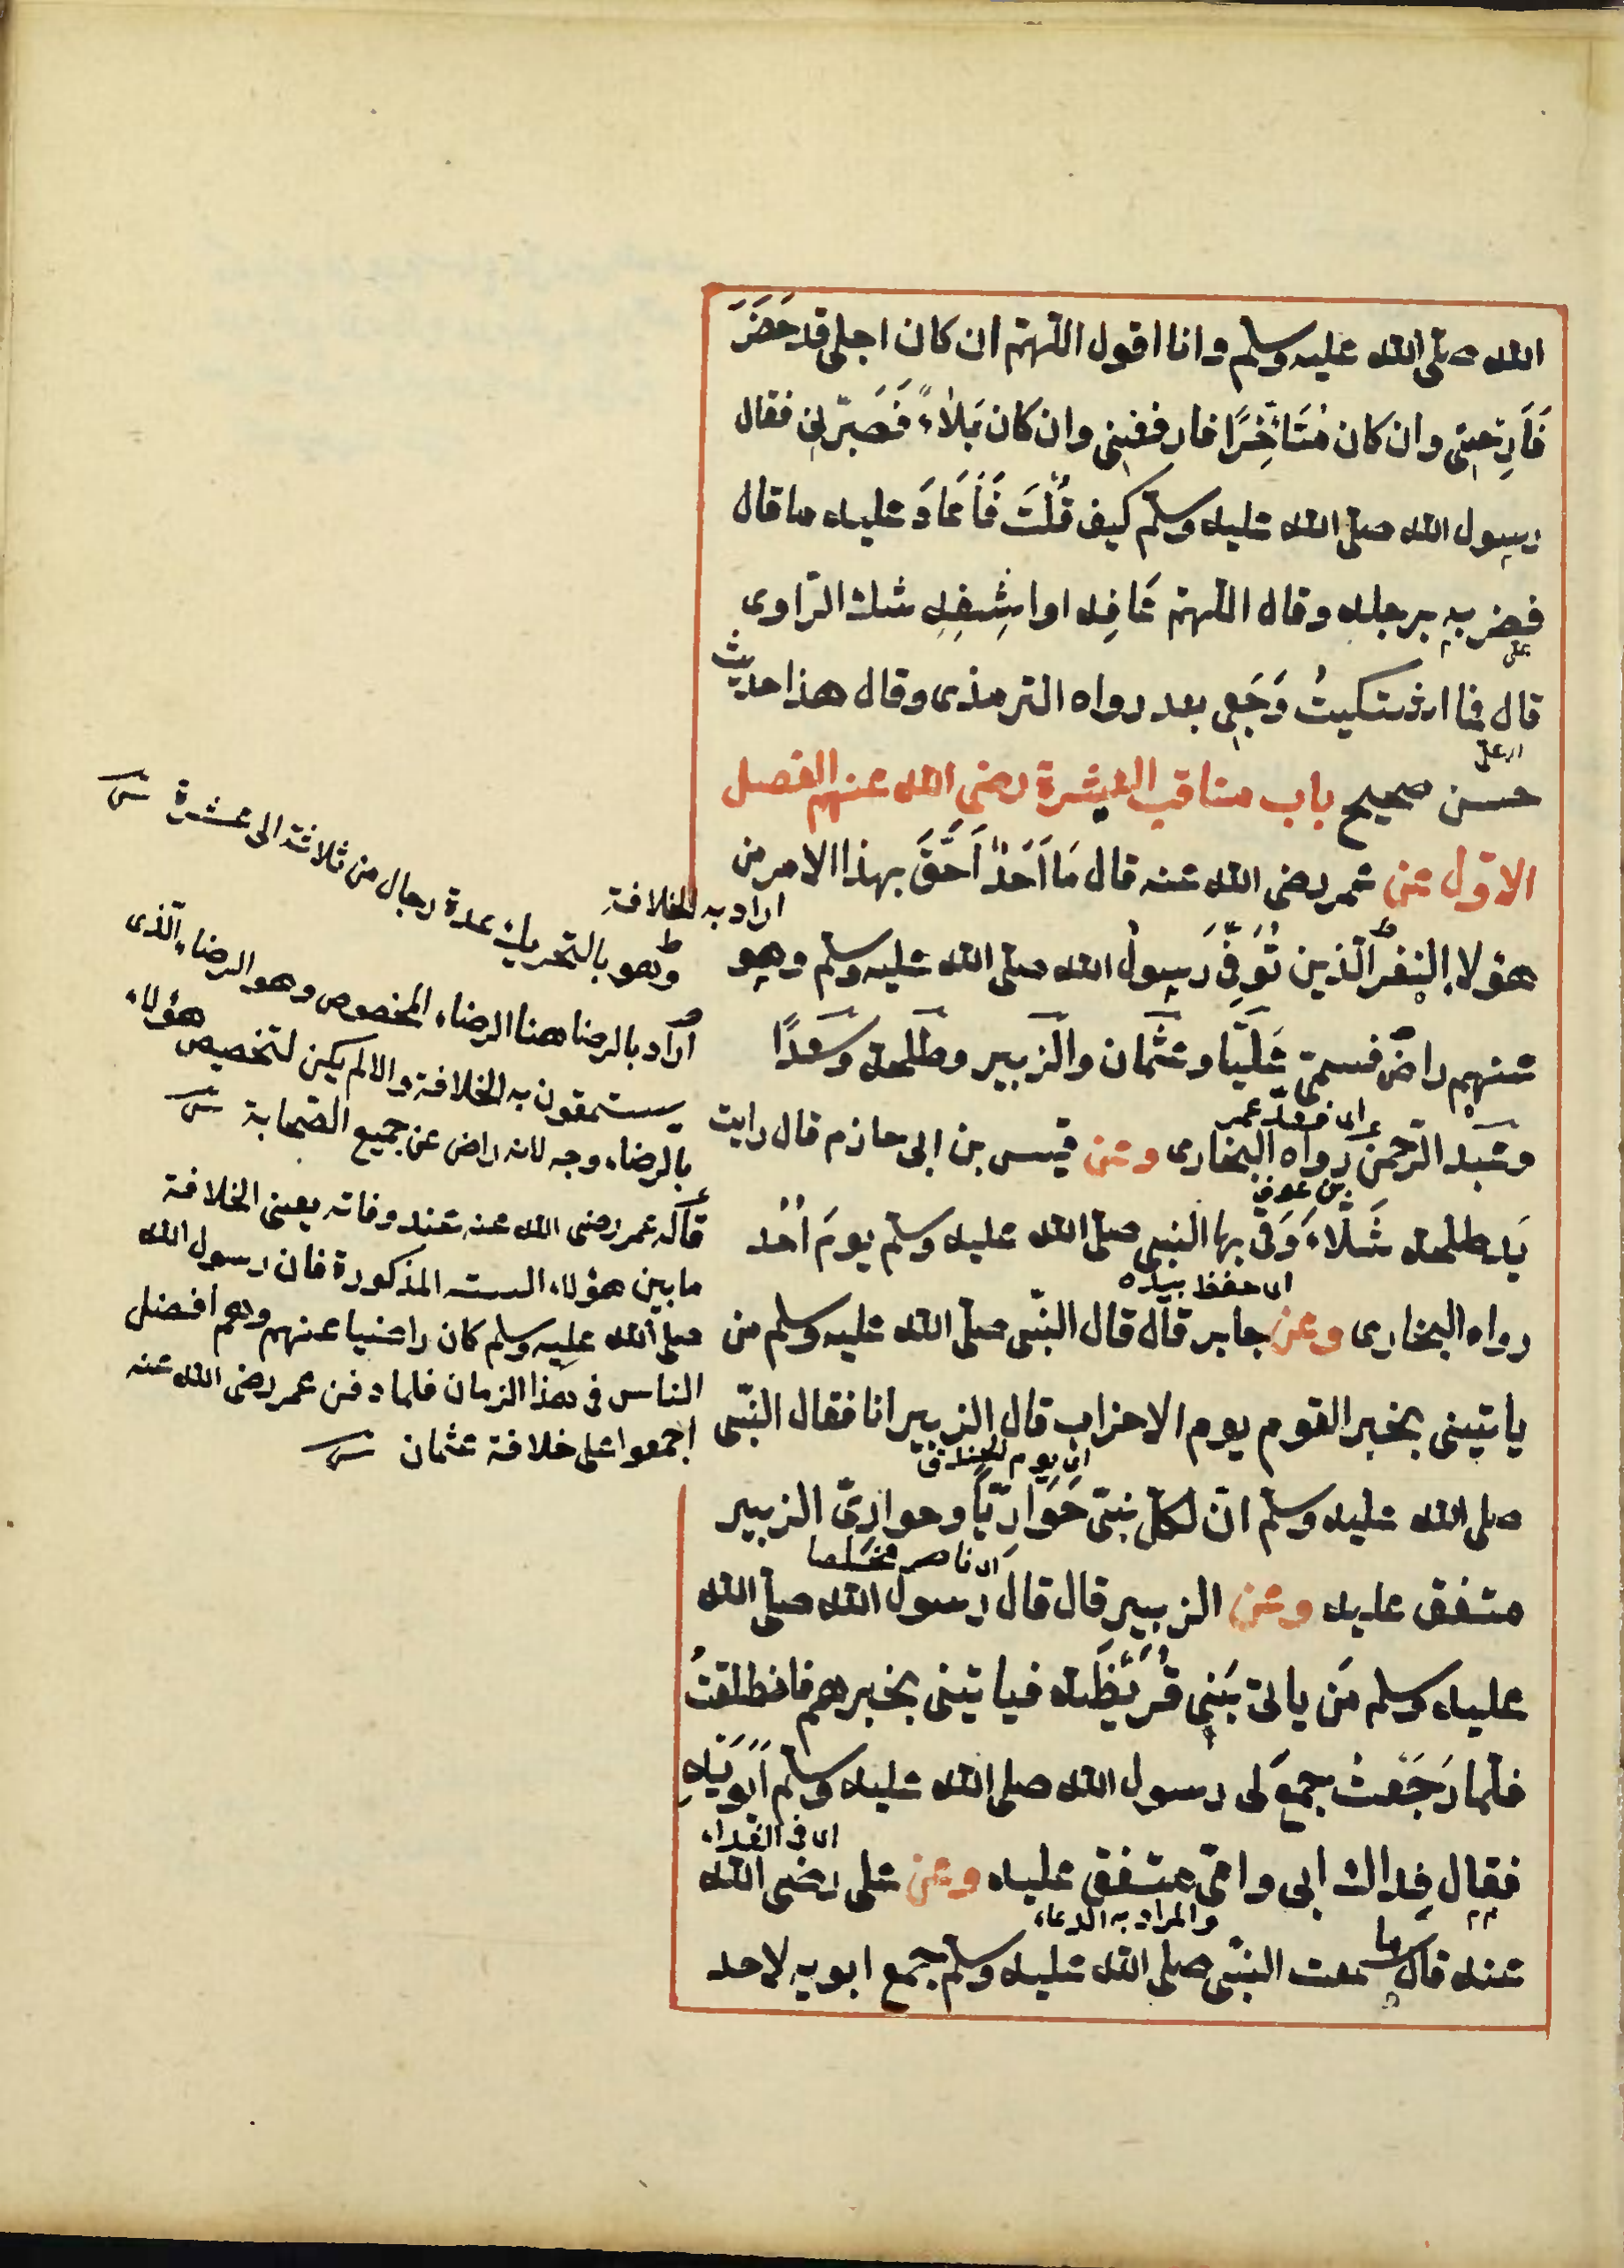 الله صلى الله عليه وسلم وانا اقول اللهم ان كان اجلى قد حَضَرَ
فَاَرِحْنِى وان كان مُتَاَخِّرًا فارفغنى وان كان بَلاءً فَصَبِّرْنِى فقال
رسول الله صلى الله عليه وسلم كيف قُلْتَ فَاَعَادَ عليه ما قال
فضربه برجله وقال اللهم عَافِه او اشِفِهِ شك الرّاوى
على
قال فما اشتكيتُ وَجَعِى بعد رواه الترمذى وقال هذا حديث
اى على
حسن صحيح باب مناقب العشرة رضى الله عنهم الفصل
الاوّل عن عمر رضى الله عنه قال مَا اَحَدٌ اَحَقَّ بهذا الامر من
اراد به الخلافة
هؤلاء النفر الّذين تُوَفِّىَ رسول الله صلى الله عليه وسلم وهو
عنهم راضٍ فسمّى عَلَيّا وعثمان والزبير وطلحة وسعدًا
اى فعدّ عمر
وعبد الرّحمن رواه البخارى وعن قيس بن ابى حازم قال رايت
بن عوف
يَد طلحة شَلّاءَ وَقَى بها النبى صلى الله عليه وسلم يومَ اُحُد
اى حفظ بيده
رواه البخارى وعن جابر قال قال النّبى صلى الله عليه وسلم من
ياتينى بخبر القوم يوم الاحزاب قال الزبير انا فقال النّبى
اى يوم الخندق
صلى الله عليه وسلم انّ لكلّ نبىّ حَوَارِيّا وحوارىّ الزبير
اى ناصر مخلصا
متفق عليه وعن الزبير قال قال رسول الله صلى الله
عليه وسلم مَن ياتى بَنِى قُرَيْظَة فياتينى بخبرهم فانطلقتُ
فلمّا رَجَعْتُ جمعَ لى رسول الله صلى الله عليه وسلم اَبَوَيْهِ
اى فى الفداء
فقال فِداك ابى وامّى متفق عليه وعن على رضى الله
والمراد به الدعاء
عنه قال ما سمعت النبّى صلى الله عليه وسلم جمع ابويه لاحد
وهو بالتحريك عدة رجال من ثلاثة الى عشرة
اراد بالرضا هنا الرضاء المخصوص وهو الرضاء الّذى
يستحقون به الخلافة والا لم يكن لتخصيص هؤلاء
بالرضاء وجه لانه راض عن جميع الصّحابة
قاله عمر رضى الله عنه عند وفاته يعنى الخلافة
ما بين هؤلاء الستة المذكورة فان رسول الله
صلى الله عليه وسلم كان راضيا عنهم وهم افضل
الناس فى هذا الزمان فلما دفن عمر رضى الله عنه
اجمعوا على خلافة عثمان